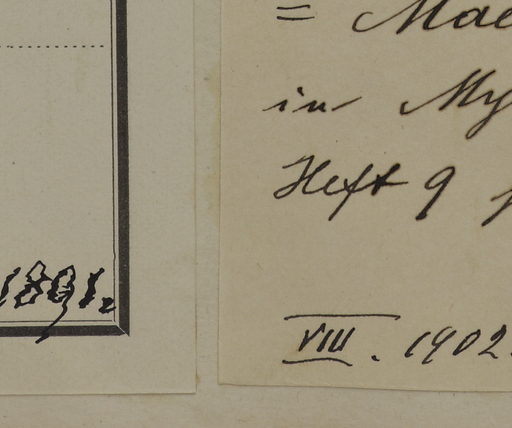 1891.
= Mac
in My
Heft 9 p
VIII. 1902.